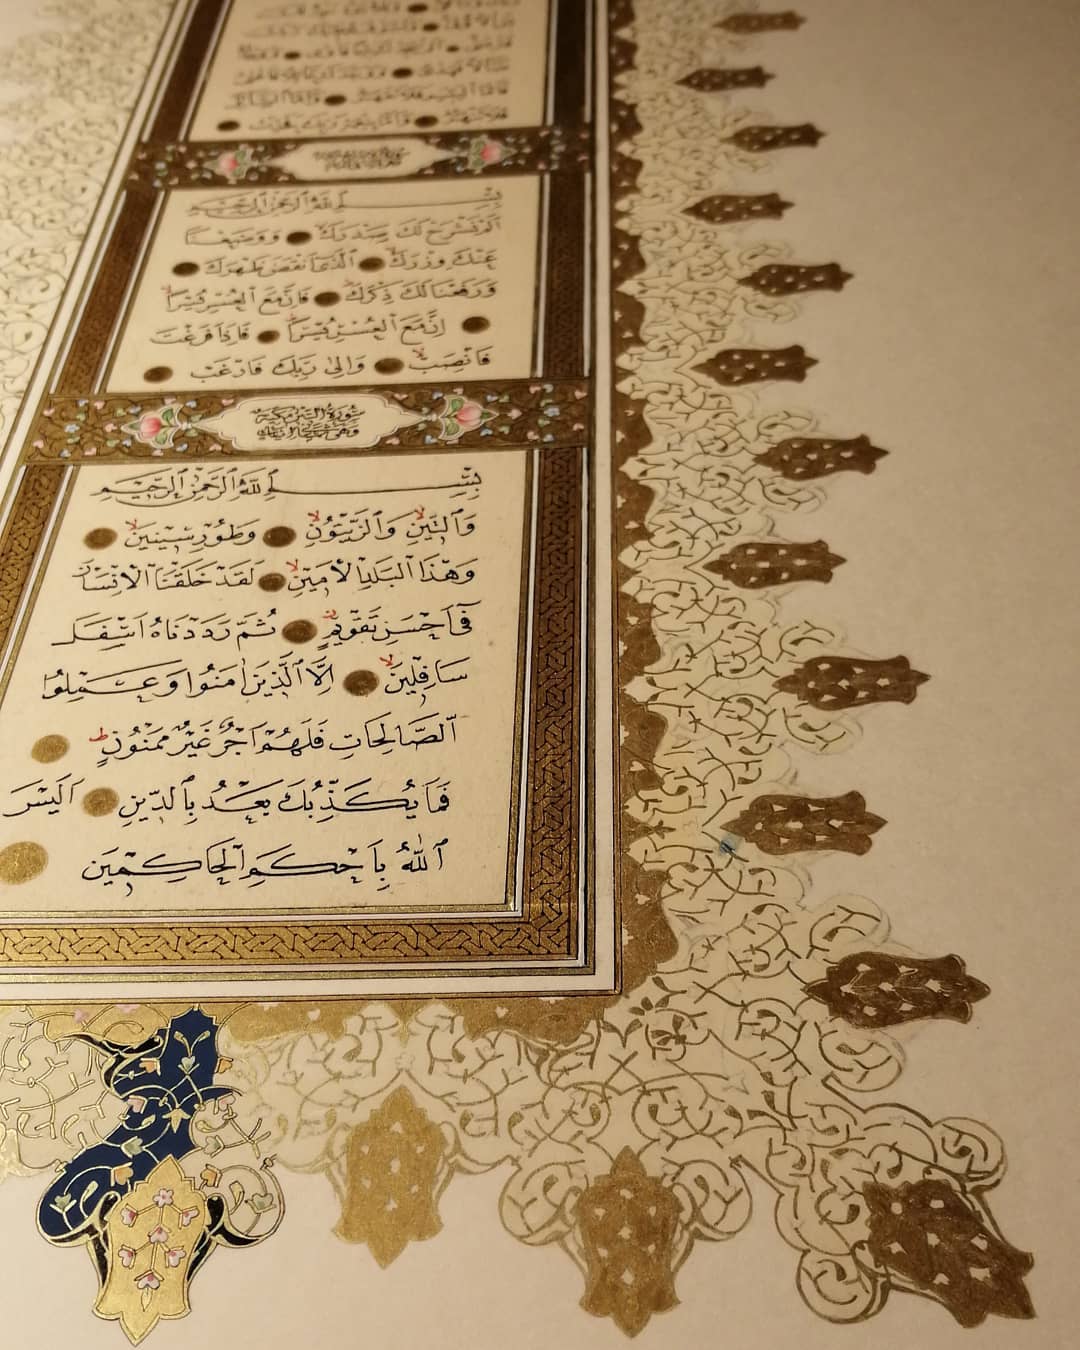 ضَالًّا فَهَدٰى وَوَجَدَكَ عَائِلًا فَاَغْنٰى
فَاَمَّا الْيَتِيمَ فَلَا تَقْهَرْ وَاَمَّا السَّائِلَ
فَلَا تَنْهَرْ وَاَمَّا بِنِعْمَةِ رَبِّكَ فَحَدِّثْ
بِسْمِ اللّٰهِ الرَّحْمٰنِ الرَّحِيمِ
اَلَمْ نَشْرَحْ لَكَ صَدْرَكَ وَوَضَعْنَا
عَنْكَ وِزْرَكَ اَلَّذِى اَنْقَضَ ظَهْرَكَ
وَرَفَعْنَا لَكَ ذِكْرَكَ فَاِنَّ مَعَ الْعُسْرِ يُسْرًا
اِنَّ مَعَ الْعُسْرِ يُسْرًا فَاِذَا فَرَغْتَ
فَانْصَبْ وَاِلٰى رَبِّكَ فَارْغَبْ
سُورَةُ التِّينِ مَكِّيَّةٌ
وَهِىَ ثَمَانُ اٰيَاتٍ
بِسْمِ اللّٰهِ الرَّحْمٰنِ الرَّحِيمِ
وَالتِّينِ وَالزَّيْتُونِ وَطُورِ سِينِينَ
وَهٰذَا الْبَلَدِ الْاَمِينِ لَقَدْ خَلَقْنَا الْاِنْسَانَ
فِى اَحْسَنِ تَقْوِيمٍ ثُمَّ رَدَدْنَاهُ اَسْفَلَ
سَافِلِينَ اِلَّا الَّذِينَ اٰمَنُوا وَعَمِلُوا
الصَّالِحَاتِ فَلَهُمْ اَجْرٌ غَيْرُ مَمْنُونٍ
فَمَا يُكَذِّبُكَ بَعْدُ بِالدِّينِ اَلَيْسَ
اللّٰهُ بِاَحْكَمِ الْحَاكِمِينَ